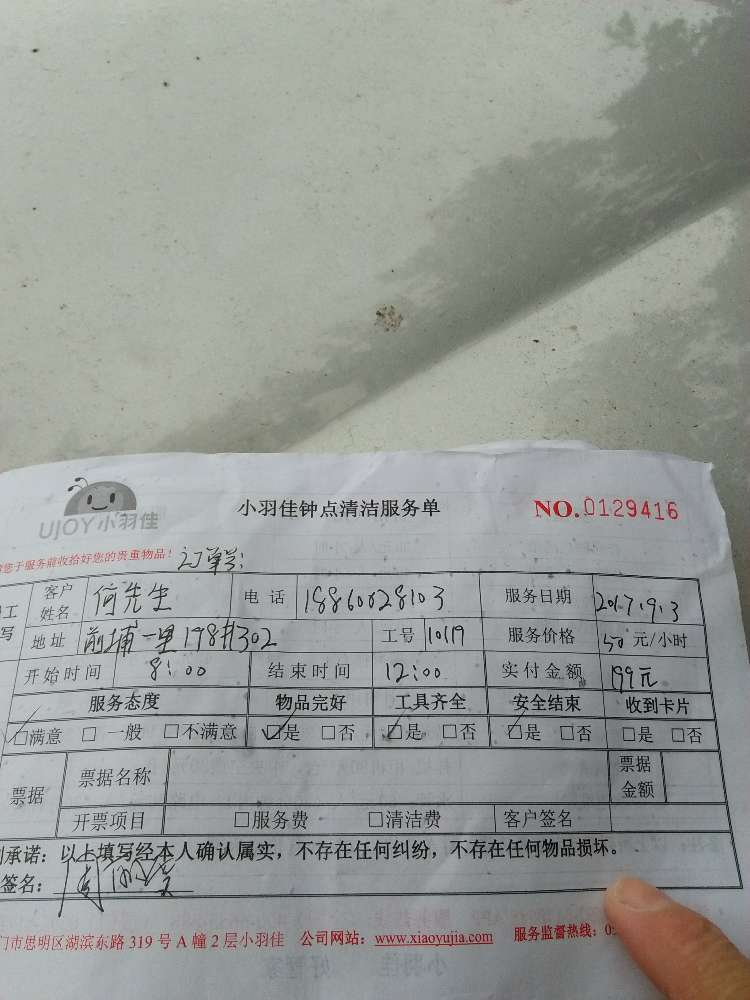 UJOY小羽佳
小羽佳钟点清洁服务单
NO.0129416
您于服务前收拾好您的贵重物品！ 订单号：
客户姓名 何先生 电话 18860028103 服务日期 2017.9.3
地址 前埔一里198#302 工号 10119 服务价格 50 元/小时
开始时间 8:00 结束时间 12:00 实付金额 199元
服务态度 物品完好 工具齐全 安全结束 收到卡片
□满意 □一般 □不满意 □是 □否 □是 □否 □是 □否 □是 □否
票据 票据名称 票据金额
开票项目 □服务费 □清洁费 客户签名
承诺：以上填写经本人确认属实，不存在任何纠纷，不存在任何物品损坏。
签名：
门市思明区湖滨东路 319 号 A 幢 2 层小羽佳 公司网站：www.xiaoyujia.com 服务监督热线：